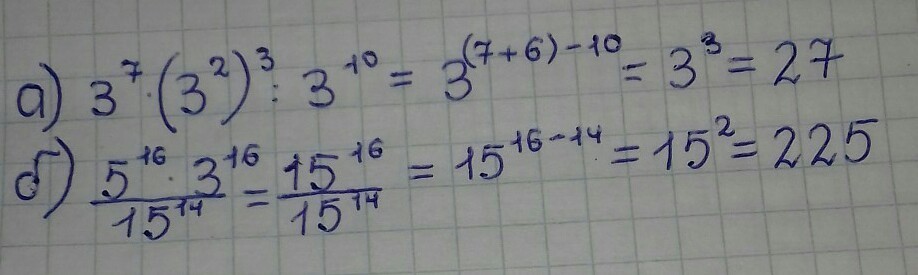 а) 3⁷·(3²)³ : 3¹⁰ = 3⁽⁷⁺⁶⁾⁻¹⁰ = 3³ = 27
б) 5¹⁶·3¹⁶/15¹⁴ = 15¹⁶/15¹⁴ = 15¹⁶⁻¹⁴ = 15² = 225